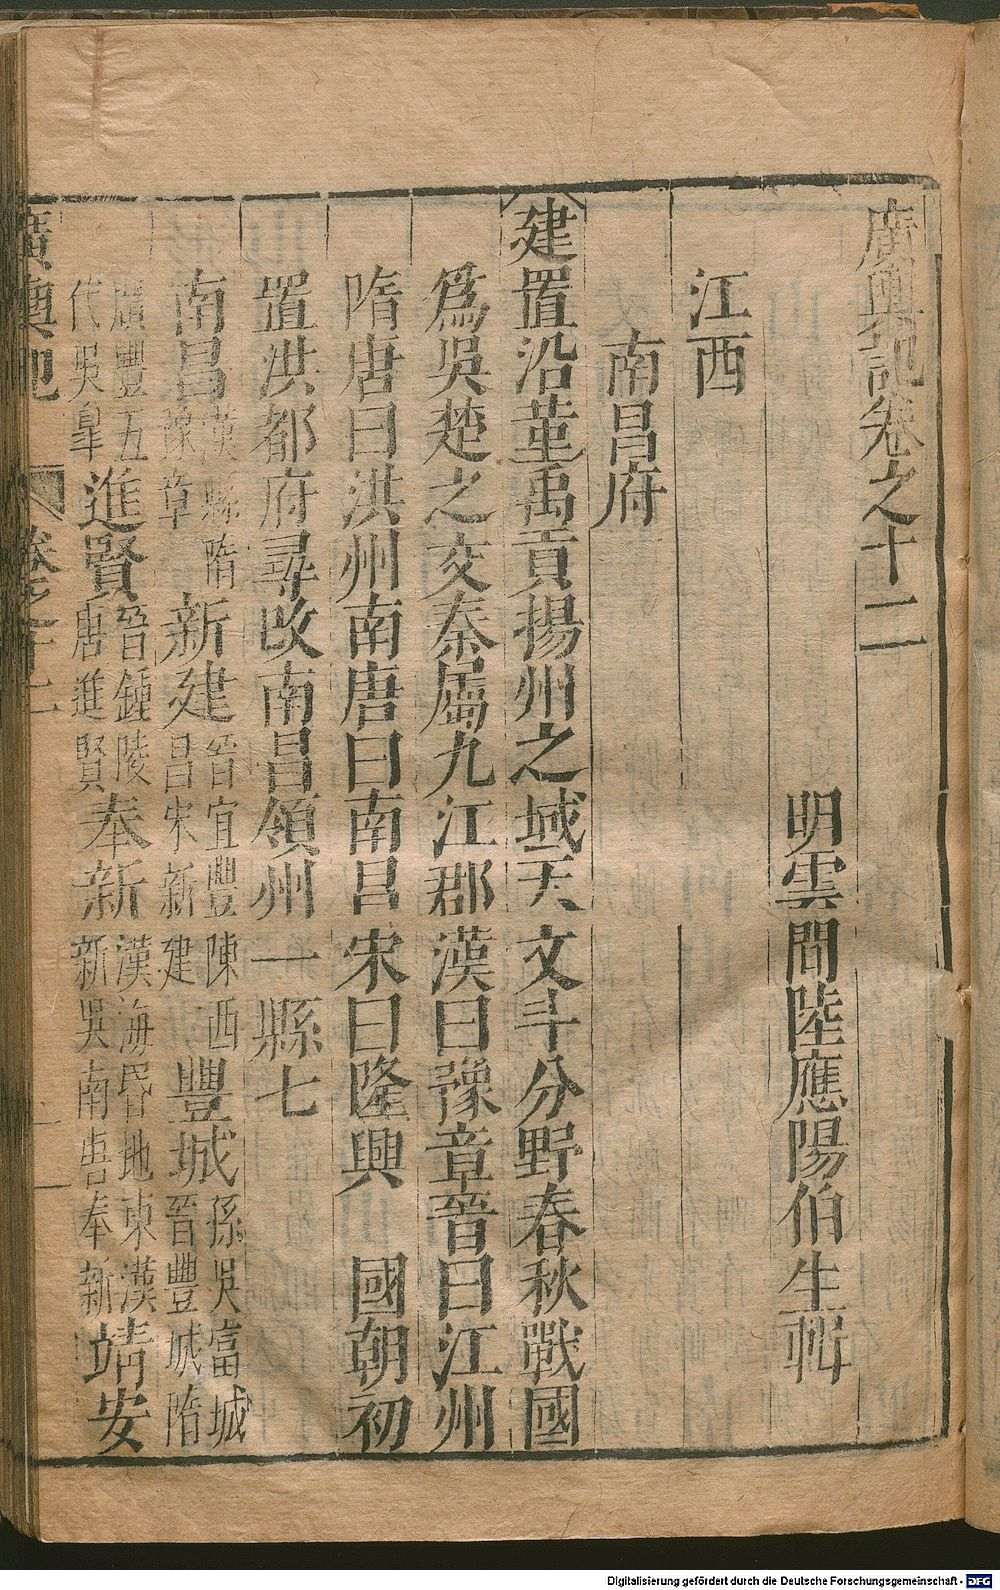 廣輿記卷之十二
明雲間陸應陽伯生輯
江西
南昌府
建置沿革禹貢揚州之域天文斗分野春秋戰國
爲吳楚之交秦屬九江郡漢曰豫章晉曰江州
隋唐曰洪州南唐曰南昌宋曰隆興 國朝初
置洪都府尋改南昌領州一縣七
南昌漢縣隋豫章新建晉宜豐陳西昌宋新建豐城孫吳富城晉豐城隋
廣豐五代吳皐進賢晉鍾陵唐進賢奉新漢海昏地東漢新吳南唐奉新靖安
廣輿記 卷之十二 一
Digitalisierung gefördert durch die Deutsche Forschungsgemeinschaft - DFG